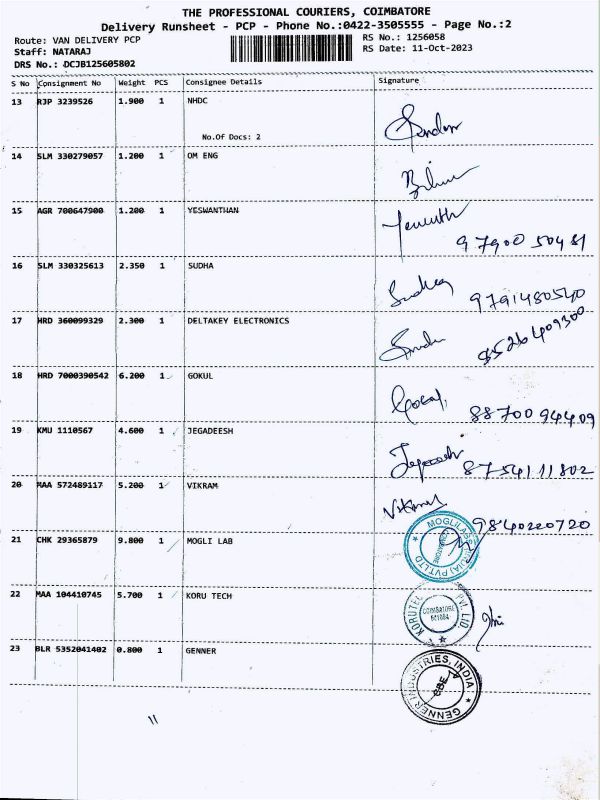 THE PROFESSIONAL COURIERS, COIMBATORE
Delivery Runsheet - PCP - Phone No.:0422-3505555 - Page No.:2
Route: VAN DELIVERY PCP RS No.: 1256058
Staff: NATARAJ RS Date: 11-Oct-2023
DRS No.: DCJB125605802
S No Consignment No Weight PCS Consignee Details Signature
13 RJP 3239526 1.900 1 NHDC
No.Of Docs: 2
14 SLM 330279057 1.200 1 OM ENG
15 AGR 700647900 1.200 1 YESWANTHAN
97900 50481
16 SLM 330325613 2.350 1 SUDHA
9791480540
17 HRD 360099329 2.300 1 DELTAKEY ELECTRONICS
18 HRD 7000390542 6.200 1 GOKUL
88700 94409
19 KMU 1110567 4.600 1 JEGADEESH
8754111802
20 MAA 572489117 5.200 1 VIKRAM
9840220720
21 CHK 29365879 9.800 1 MOGLI LAB
22 MAA 104410745 5.700 1 KORU TECH
KORUTECH PVT LTD
COIMBATORE
23 BLR 5352041402 0.800 1 GENNER
GENNER INDUSTRIES, INDIA
CBE
11